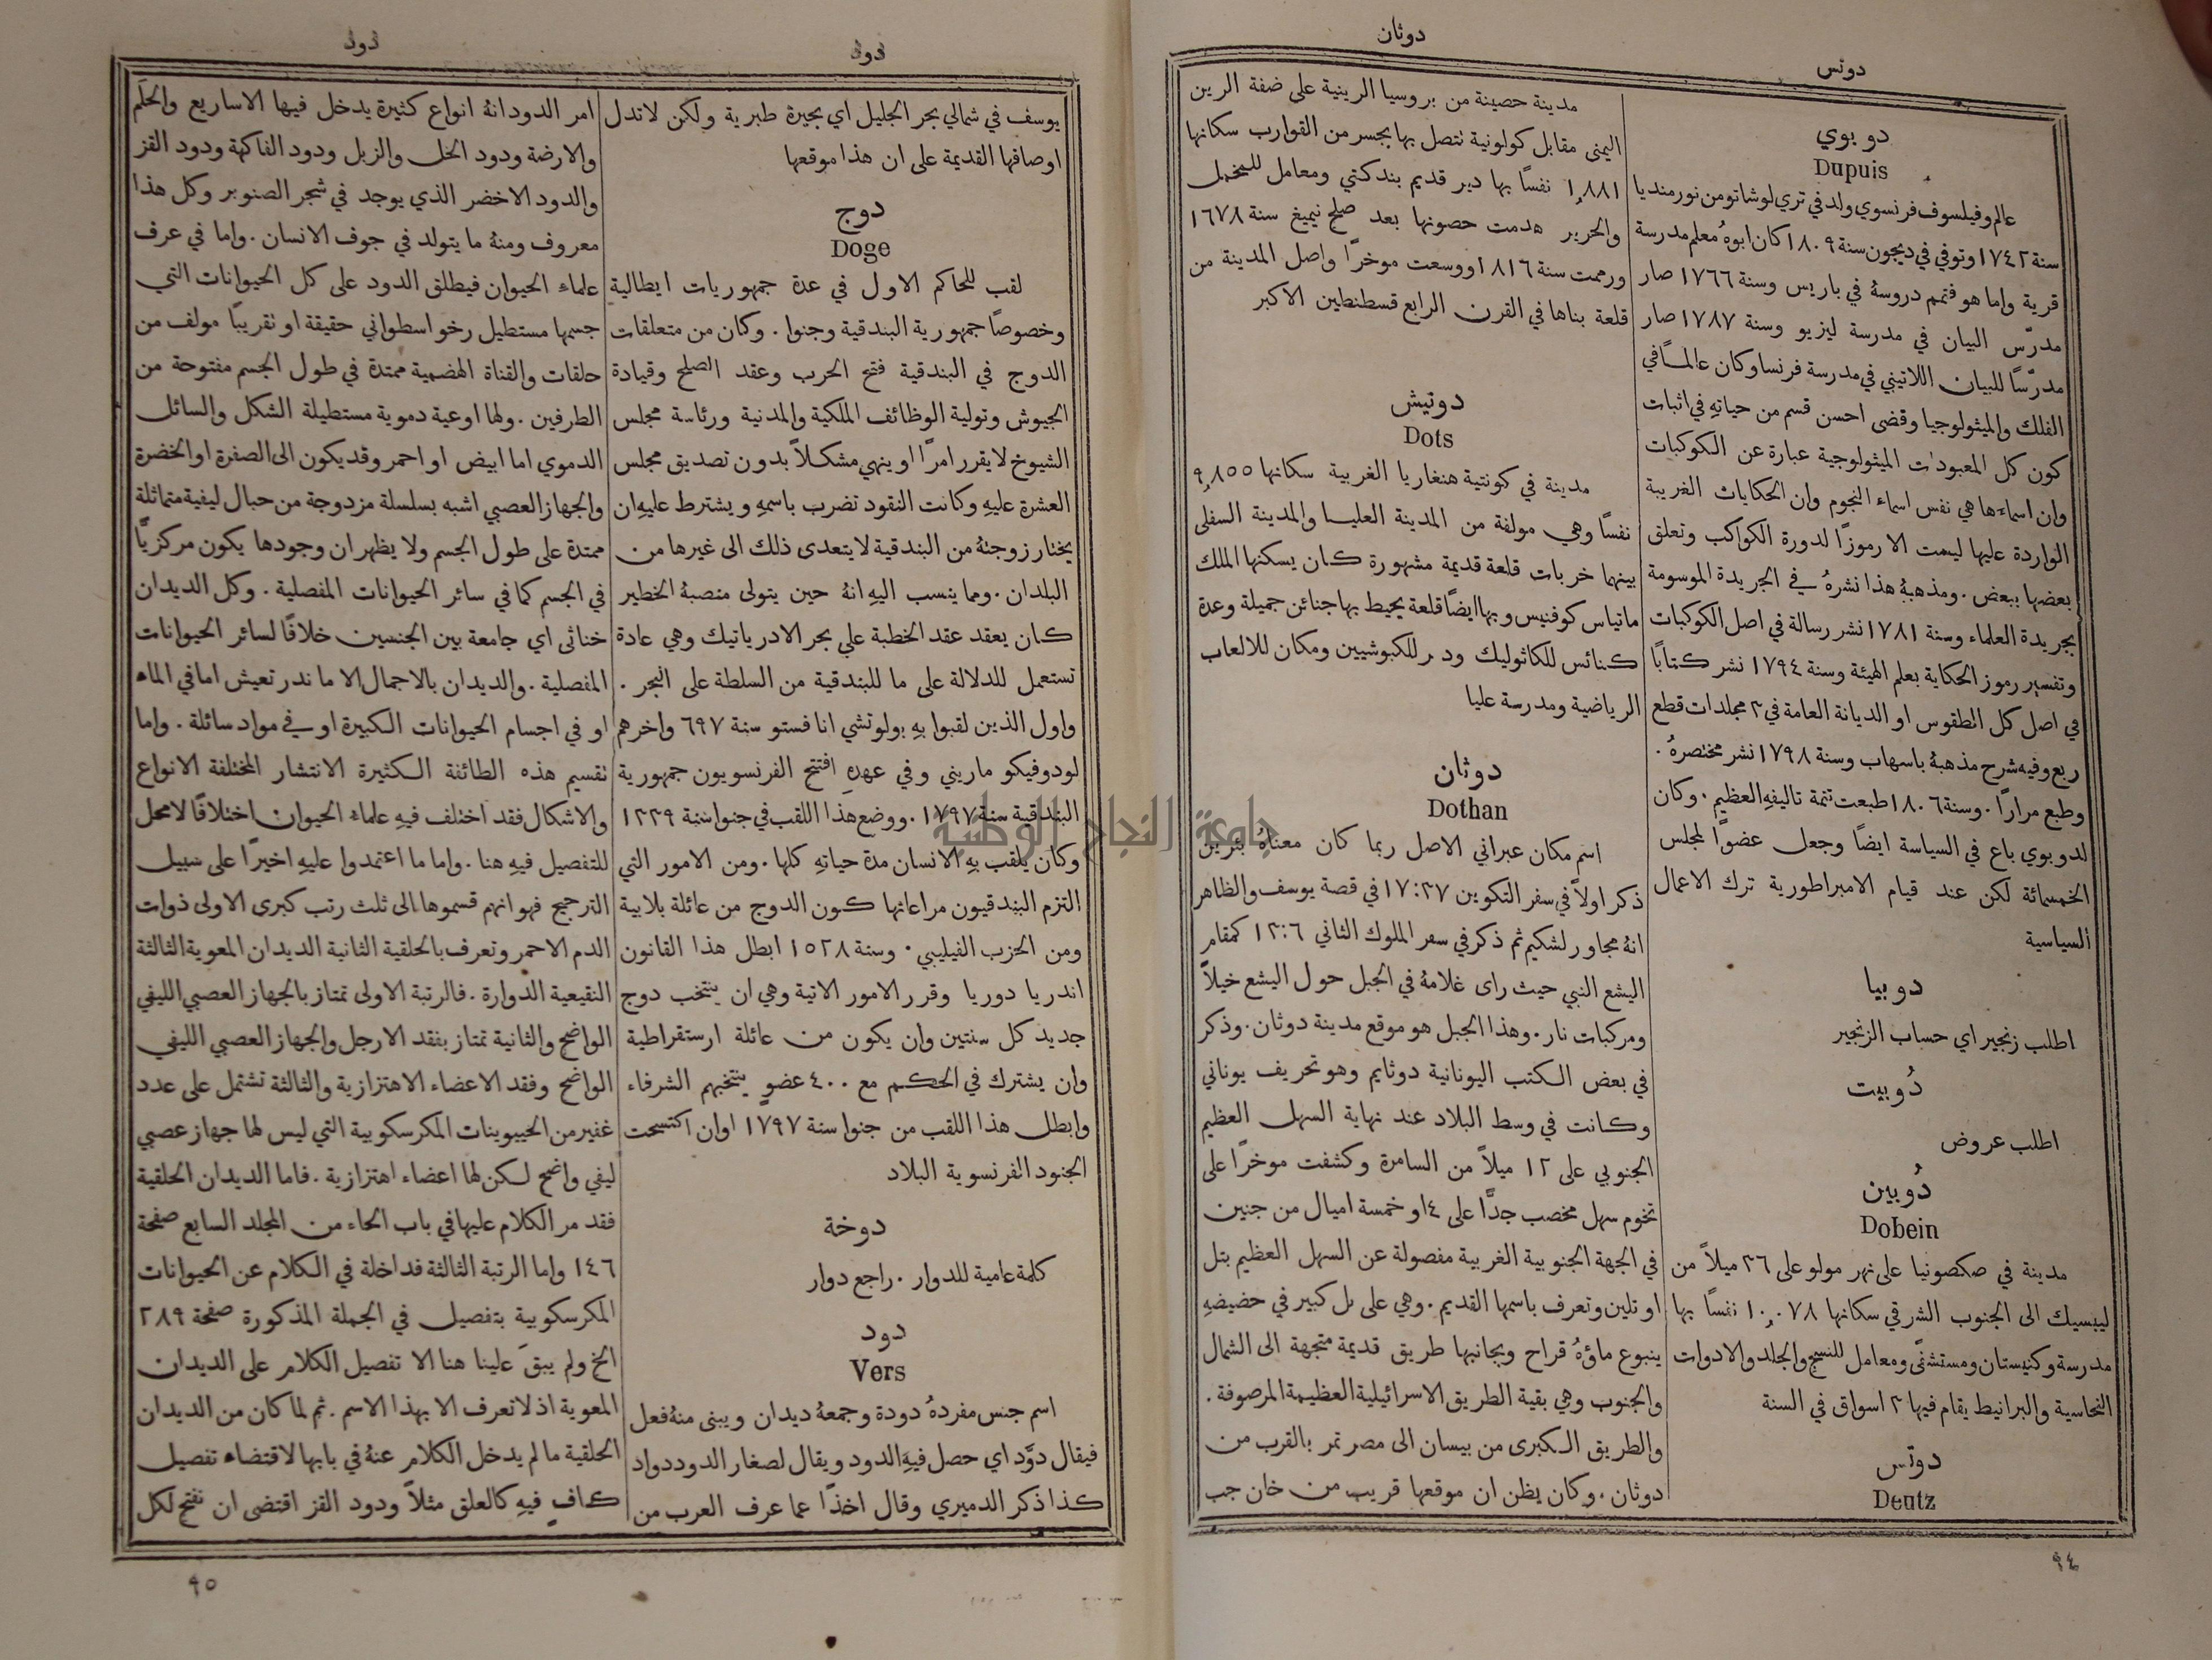 دوتس
دوثان
دوبوي
Dupuis
عالم وفيلسوف فرنسوي ولد في تري لوشاتو من نورمنديا
سنة ١٧٤٢ وتوفي في ديجون سنة ١٨٠٩ كان ابوهُ معلم مدرسة
قرية واما هو فتمم دروسهُ في باريس وسنة ١٧٦٦ صار
مدرّس البيان في مدرسة ليزيو وسنة ١٧٨٧ صار
مدرّسًا للبيان اللاتيني في مدرسة فرنسا وكان عالمًا في
الفلك والميثولوجيا وقضى احسن قسم من حياتهِ في اثبات
كون كل المعبودات الميثولوجية عبارة عن الكوكبات
وان اسماءها هي نفس اسماء النجوم وان الحكايات الغريبة
الواردة عليها ليست الا رموزًا لدورة الكواكب وتعلق
بعضها ببعض . ومذهبهُ هذا نشرهُ في الجريدة الموسومة
بجريدة العلماء وسنة ١٧٨١ نشر رسالة في اصل الكوكبات
وتفسير رموز الحكاية بعلم الهيئة وسنة ١٧٩٤ نشر كتابًا
في اصل كل الطقوس او الديانة العامة في ٣ مجلدات قطع
ربع وفيه شرح مذهبهُ باسهاب وسنة ١٧٩٨ نشر مختصرهُ .
وطبع مرارًا . وسنة ١٨٠٦ طبعت تتمة تاليفهِ العظيم . وكان
لدوبوي باع في السياسة ايضًا وجعل عضوًا لمجلس
الخمسمائة لكن عند قيام الامبراطورية ترك الاعمال
السياسية
دوبيا
اطلب زنجير اي حساب الزنجير
دُوبيت
اطلب عروض
دُوبين
Dobein
مدينة في صكصونيا على نهر مولو على ٣٦ ميلاً من
ليبسيك الى الجنوب الشرقي سكانها ١٠,٠٧٨ نفسًا بها
مدرسة وكنيستان ومستشفى ومعامل للنسج والجلد والادوات
النحاسية والبرانيط يقام فيها ٣ اسواق في السنة
دوتس
Deutz
مدينة حصينة من بروسيا الرينية على ضفة الرين
اليمنى مقابل كولونية تتصل بها بجسر من القوارب سكانها
١,٨٨١ نفسًا بها دير قديم بندكتي ومعامل للمخمل
والحرير هدمت حصونها بعد صلح نيميغ سنة ١٦٧٨
ورممت سنة ١٨١٦ ووسعت موخرًا واصل المدينة من
قلعة بناها في القرن الرابع قسطنطين الاكبر
دوتيش
Dots
مدينة في كونتية هنغاريا الغربية سكانها ٩,٨٥٥
نفسًا وهي مولفة من المدينة العليا والمدينة السفلى
بينهما خربات قلعة قديمة مشهورة كان يسكنها الملك
ماتياس كوفنيس وبها ايضًا قلعة يحيط بها جنائن جميلة وعدة
كنائس للكاثوليك ودير للكبوشيين ومكان للالعاب
الرياضية ومدرسة عليا
دوثان
Dothan
اسم مكان عبراني الاصل ربما كان معناهُ بئرين
ذكر اولاً في سفر التكوين ٣٧:١٧ في قصة يوسف والظاهر
انهُ مجاور لشكيم ثم ذكر في سفر الملوك الثاني ٦:١٣ كمقام
اليشع النبي حيث راى غلامهُ في الجبل حول اليشع خيلاً
ومركبات نار . وهذا الجبل هو موقع مدينة دوثان . وذكر
في بعض الكتب اليونانية دوثايم وهو تحريف يوناني
وكانت في وسط البلاد عند نهاية السهل العظيم
الجنوبي على ١٢ ميلاً من السامرة وكشفت موخرًا على
تخوم سهل مخصب جدًّا على ٤ او خمسة اميال من جنين
في الجهة الجنوبية الغربية مفصولة عن السهل العظيم بتل
او تلين وتعرف باسمها القديم . وهي على تل كبير في حضيضهِ
ينبوع ماؤهُ قراح وبجانبها طريق قديمة متجهة الى الشمال
والجنوب وهي بقية الطريق الاسرائيلية العظيمة المرصوفة .
والطريق الكبرى من بيسان الى مصر تمر بالقرب من
دوثان . وكان يظن ان موقعها قريب من خان جب
٩٤
دود
دود
يوسف في شمالي بحر الجليل اي بحيرة طبرية ولكن لا تدل
اوصافها القديمة على ان هذا موقعها
دوج
Doge
لقب للحاكم الاول في عدة جمهوريات ايطالية
وخصوصًا جمهورية البندقية وجنوا . وكان من متعلقات
الدوج في البندقية فتح الحرب وعقد الصلح وقيادة
الجيوش وتولية الوظائف الملكية والمدنية ورئاسة مجلس
الشيوخ لا يقرر امرًا او ينهي مشكلاً بدون تصديق مجلس
العشرة عليهِ وكانت النقود تضرب باسمهِ ويشترط عليهِ ان
يختار زوجتهُ من البندقية لا يتعدى ذلك الى غيرها من
البلدان . ومما ينسب اليهِ انهُ حين يتولى منصبهُ الخطير
كان يعقد عقد الخطبة على بحر الادرياتيك وهي عادة
تستعمل للدلالة على ما للبندقية من السلطة على البحر .
واول الذين لقبوا بهِ بولوتشي انا فستو سنة ٦٩٧ واخرهم
لودوفيكو ماريني وفي عهدهِ افتتح الفرنسويون جمهورية
البندقية سنة ١٧٩٧ . ووضع هذا اللقب في جنوا سنة ١٣٣٩
وكان يلقب بهِ الانسان مدة حياتهِ كلها . ومن الامور التي
التزم البندقيون مراعاتها كون الدوج من عائلة بلابية
ومن الحزب الفيليبي . وسنة ١٥٢٨ ابطل هذا القانون
اندريا دوريا وقرر الامور الاتية وهي ان ينتخب دوج
جديد كل سنتين وان يكون من عائلة ارستقراطية
وان يشترك في الحكم مع ٤٠٠ عضو ينتخبهم الشرفاء
وابطل هذا اللقب من جنوا سنة ١٧٩٧ اوان اكتسحت
الجنود الفرنسوية البلاد
دوخة
كلمة عامية للدوار . راجع دوار
دود
Vers
اسم جنس مفردهُ دودة وجمعهُ ديدان ويبنى منهُ فعل
فيقال دوَّد اي حصل فيهِ الدود ويقال لصغار الدود دواد
كذا ذكر الدميري وقال اخذًا عما عرف العرب من
امر الدود انهُ انواع كثيرة يدخل فيها الاساريع والحلَم
والارضة ودود الخل والزبل ودود الفاكهة ودود القز
والدود الاخضر الذي يوجد في شجر الصنوبر وكل هذا
معروف ومنهُ ما يتولد في جوف الانسان . واما في عرف
علماء الحيوان فيطلق الدود على كل الحيوانات التي
جسمها مستطيل رخو اسطواني حقيقة او تقريبًا مولف من
حلقات والقناة الهضمية ممتدة في طول الجسم مفتوحة من
الطرفين . ولها اوعية دموية مستطيلة الشكل والسائل
الدموي اما ابيض او احمر وقد يكون الى الصفرة او الخضرة
والجهاز العصبي اشبه بسلسلة مزدوجة من حبال ليفية متماثلة
ممتدة على طول الجسم ولا يظهر ان وجودها يكون مركزيًّا
في الجسم كما في سائر الحيوانات المفصلية . وكل الديدان
خناثى اي جامعة بين الجنسين خلافًا لسائر الحيوانات
المفصلية . والديدان بالاجمال الا ما ندر تعيش اما في الماء
او في اجسام الحيوانات الكبيرة او في مواد سائلة . واما
تقسيم هذه الطائفة الكثيرة الانتشار المختلفة الانواع
والاشكال فقد اختلف فيهِ علماء الحيوان اختلافًا لا محل
للتفصيل فيهِ هنا . واما ما اعتمدوا عليهِ اخيرًا على سبيل
الترجيح فهو انهم قسموها الى ثلث رتب كبرى الاولى ذوات
الدم الاحمر وتعرف بالحلقية الثانية الديدان المعوية الثالثة
النقيعية الدوارة . فالرتبة الاولى تمتاز بالجهاز العصبي الليفي
الواضح والثانية تمتاز بفقد الارجل والجهاز العصبي الليفي
الواضح وفقد الاعضاء الاهتزازية والثالثة تشتمل على عدد
غفير من الحييوينات المكرسكوبية التي ليس لها جهاز عصبي
ليفي واضح لكن لها اعضاء اهتزازية . فاما الديدان الحلقية
فقد مر الكلام عليها في باب الحاء من المجلد السابع صفحة
١٤٦ واما الرتبة الثالثة فداخلة في الكلام عن الحيوانات
المكرسكوبية بتفصيل في الجملة المذكورة صفحة ٢٨٩
الخ ولم يبقَ علينا هنا الا تفصيل الكلام على الديدان
المعوية اذ لا تعرف الا بهذا الاسم . ثم لما كان من الديدان
الحلقية ما لم يدخل الكلام عنهُ في بابها لاقتضاء تفصيل
كافٍ فيهِ كالعلق مثلاً ودود القز اقتضى ان نفتح لكل
٩٥
جامعة النجاح الوطنية